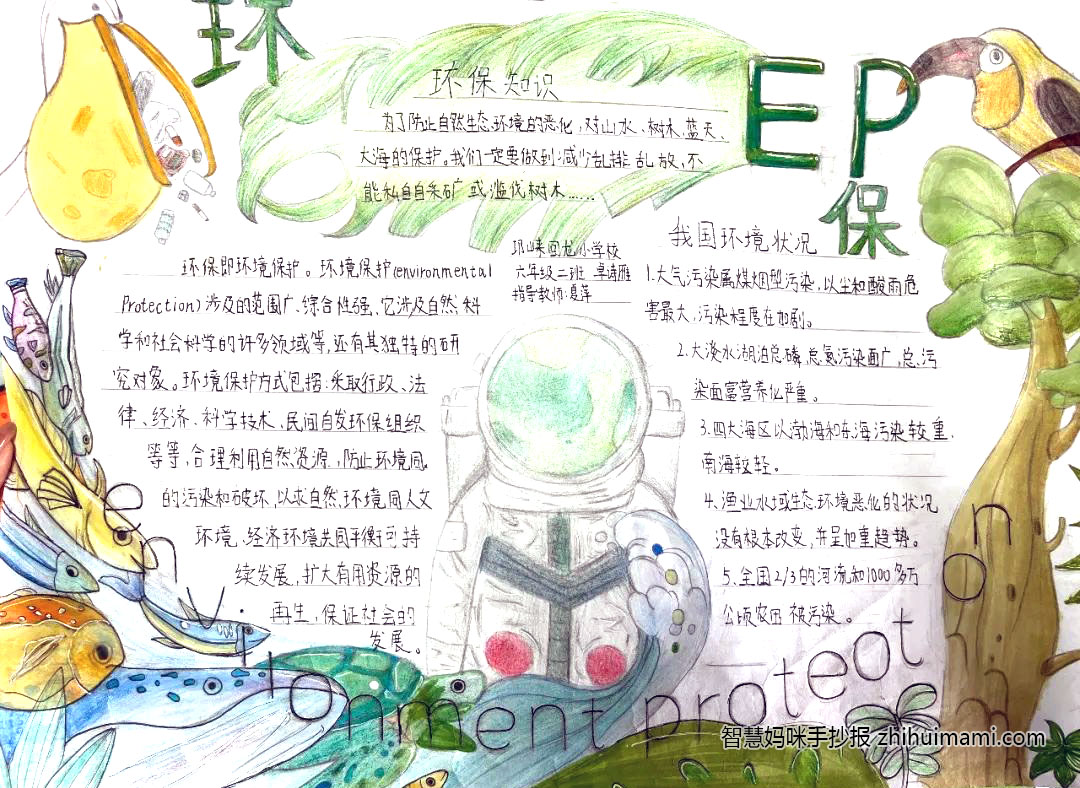 环
EP
保
环保知识
为了防止自然生态环境的恶化,对山水、树木、蓝天、
大海的保护。我们一定要做到:减少乱排乱放,不
能私自采矿或滥伐树木……
邛崃回龙小学校
六年级二班 卓诗雁
指导教师:夏萍
环保即环境保护。环境保护(environmental
Protection)涉及的范围广、综合性强、它涉及自然科
学和社会科学的许多领域等,还有其独特的研
究对象。环境保护方式包括:采取行政、法
律、经济、科学技术、民间自发环保组织
等等,合理利用自然资源,防止环境间
的污染和破坏,以求自然环境间人文
环境、经济环境共同平衡可持
续发展,扩大有用资源的
再生,保证社会的
发展。
我国环境状况
1.大气污染属煤烟型污染,以尘和酸雨危
害最大,污染程度在加剧。
2.大淡水湖泊总磷,总氮污染面广,总污
染面富营养化严重。
3.四大海区以渤海和东海污染较重,
南海较轻。
4.渔业水域生态环境恶化的状况
没有根本改变,并呈加重趋势。
5.全国2/3的河流和1000多万
公顷农田被污染。
environment proteotion
智慧妈咪手抄报 zhihuimami.com